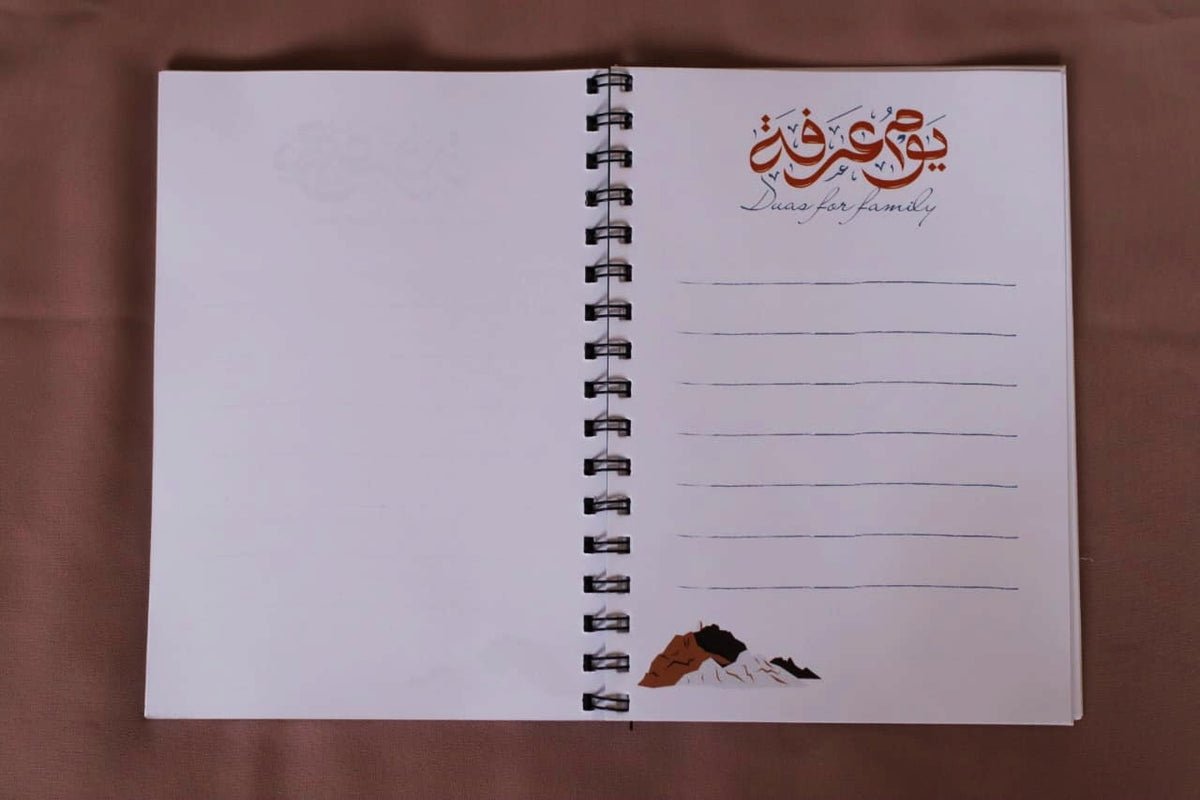 يَوْمُ عَرَفَة
Duas for family